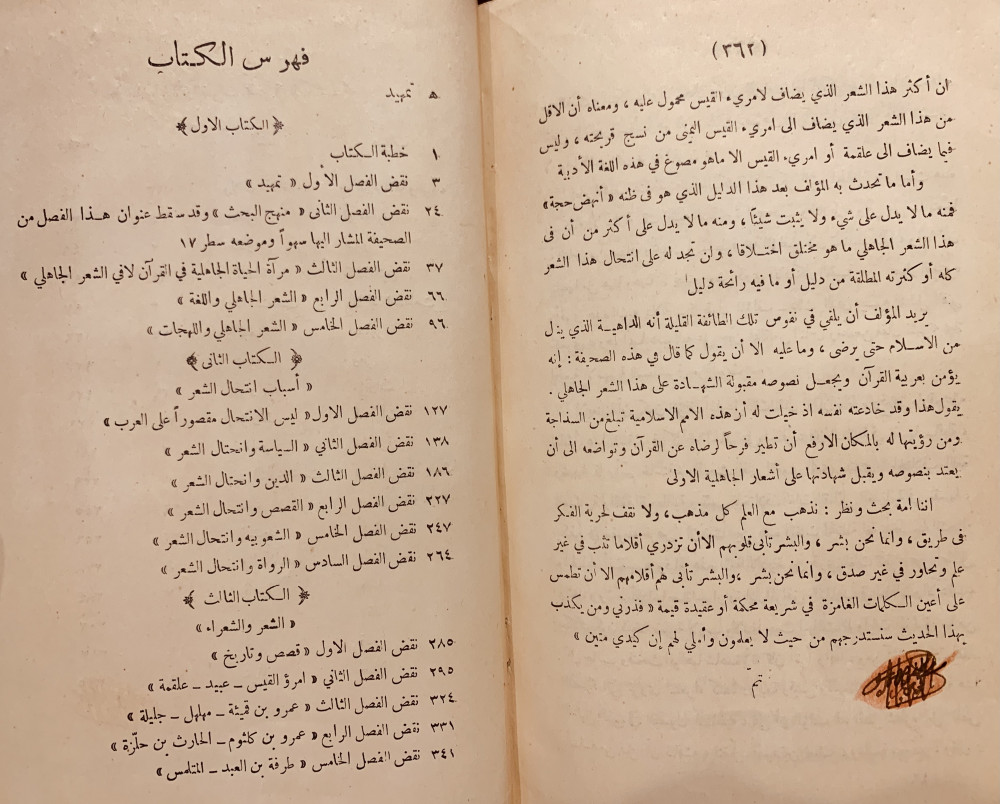 (٣٦٢)
ان أكثر هذا الشعر الذي يضاف لامريء القيس محمول عليه ، ومعناه أن الاقل
من هذا الشعر الذي يضاف الى امريء القيس اليمنى من نسج قريحته ، وليس
فيما يضاف الى علقمة أو امريء القيس الا ماهو مصوغ في هذه اللغة الأدبية
وأما ما تحدث به المؤلف بعد هذا الدليل الذي هو فى ظنه « أنهض حجة »
فمنه ما لا يدل على شيء ولا يثبت شيئاً ، ومنه ما لا يدل على أكثر من أن فى
هذا الشعر الجاهلي ما هو مختلق اختلاقا ، ولن تجد له على انتحال هذا الشعر
كله أو كثرته المطلقة من دليل أو ما فيه رائحة دليل
يريد المؤلف أن يلقي في نفوس تلك الطائفة القليلة أنه الداهية الذي ينال
من الاسلام حتى يرضى ، وما عليه الا أن يقول كما قال في هذه الصحيفة : إنه
يؤمن بعربية القرآن ويجعل نصوصه مقبولة الشهادة على هذا الشعر الجاهلي .
يقول هذا وقد خادعته نفسه اذ خيلت له أن هذه الامم الاسلامية تبلغ من السذاجة
ومن رؤيتها له بالمكان الارفع أن تطير فرحاً لرضاه عن القرآن وتواضعه الى أن
يعتد بنصوصه ويقبل شهادتها على أشعار الجاهلية الاولى
اننا امة بحث ونظر : نذهب مع العلم كل مذهب ، ولا نقف لحرية الفكر
فى طريق ، وانما نحن بشر ، والبشر تأبى قلوبهم الا أن تزدري أقلاما تثب في غير
علم وتحاور في غير صدق ، وانما نحن بشر ، والبشر تأبى لهم أقلامهم الا أن تطمس
على أعين الكلمات الغامزة في شريعة محكمة أو عقيدة قيمة « فذرني ومن يكذب
بهذا الحديث سنستدرجهم من حيث لا يعلمون وأملي لهم إن كيدي متين »
تم
فهرس الكتاب
ه تمهيد
﴿ الكتاب الاول ﴾
١ خطبة الكتاب
٣ نقض الفصل الأول « تمهيد »
٢٤ نقض الفصل الثانى « منهج البحث » وقد سقط عنوان هذا الفصل من
الصحيفة المشار اليها سهواً وموضعه سطر ١٧
٣٧ نقض الفصل الثالث « مرآة الحياة الجاهلية في القرآن لا في الشعر الجاهلي »
٦٦ نقض الفصل الرابع « الشعر الجاهلي واللغة »
٩٦ نقض الفصل الخامس « الشعر الجاهلي واللهجات »
﴿ الكتاب الثانى ﴾
« أسباب انتحال الشعر »
١٢٧ نقض الفصل الاول « ليس الانتحال مقصوراً على العرب »
١٣٨ نقض الفصل الثاني « السياسة وانتحال الشعر »
١٨٦ نقض الفصل الثالث « الدين وانتحال الشعر »
٢٢٧ نقض الفصل الرابع « القصص وانتحال الشعر »
٢٤٧ نقض الفصل الخامس « الشعوبيه وانتحال الشعر »
٢٦٤ نقض الفصل السادس « الرواة وانتحال الشعر »
﴿ الكتاب الثالث ﴾
« الشعر والشعراء »
٢٨٥ نقض الفصل الاول « قصص وتاريخ »
٢٩٥ نقض الفصل الثاني « امرؤ القيس – عبيد – علقمة »
٣٢٤ نقض الفصل الثالث « عمرو بن قميئة – مهلهل – جليلة »
٣٣١ نقض الفصل الرابع « عمرو بن كلثوم – الحارث بن حلّزة »
٣٤١ نقض الفصل الخامس « طرفة بن العبد – المتلمس »